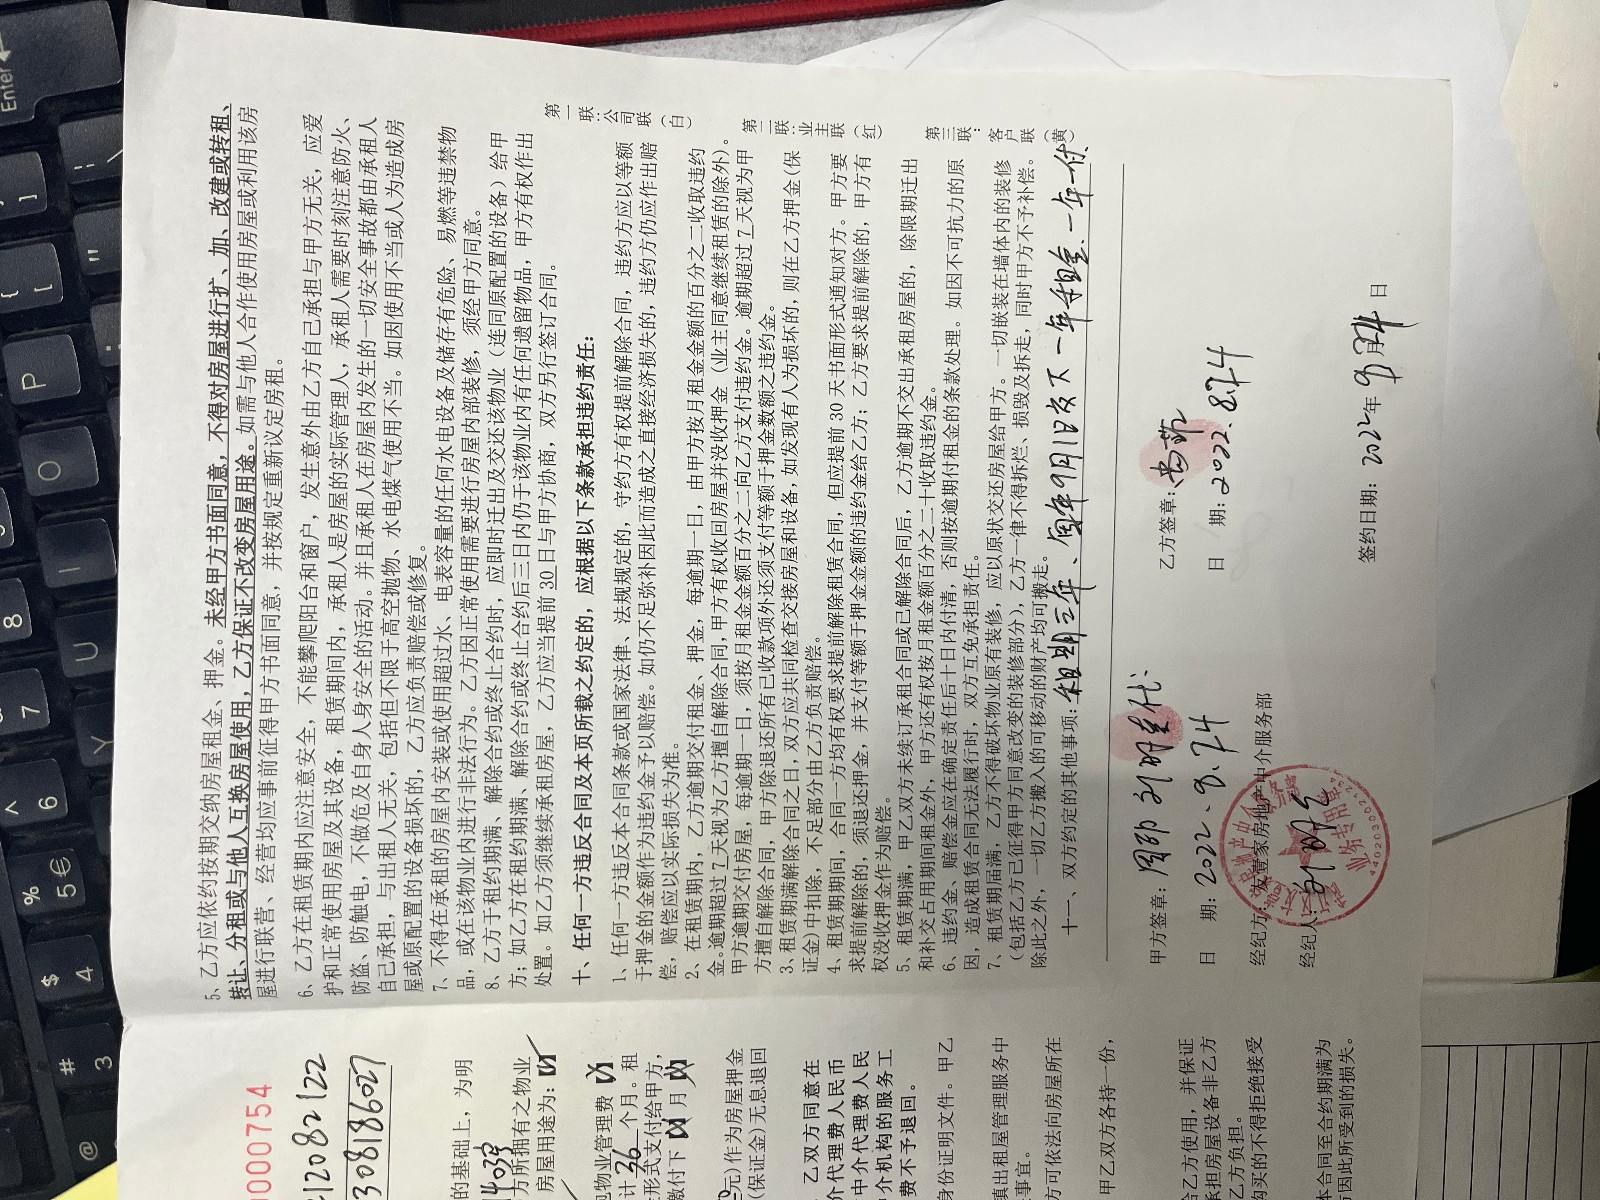 5、乙方应依约按期交纳房屋租金、押金。未经甲方书面同意，不得对房屋进行扩、加、改建或转租、
转让、分租或与他人互换房屋使用，乙方保证不改变房屋用途。如需与他人合作使用房屋或利用该房
屋进行联营、经营均应事前征得甲方书面同意，并按规定重新议定房租。
6、乙方在租赁期内应注意安全，不能攀爬阳台和窗户，发生意外由乙方自己承担与甲方无关，应爱
护和正常使用房屋及其设备，租赁期间内，承租人是房屋的实际管理人，承租人需要时刻注意防火、
防盗、防触电，不做危及自身人身安全的活动。并且承租人在房屋内发生的一切安全事故都由承租人
自己承担，与出租人无关，包括但不限于高空抛物、水电煤气使用不当。如因使用不当或人为造成房
屋或原配置的设备损坏的，乙方应负责赔偿或修复。
7、不得在承租的房屋内安装或使用超过水、电表容量的任何水电设备及储存有危险、易燃等违禁物
品，或在该物业内进行非法行为。乙方因正常使用需要进行房屋内部装修，须经甲方同意。
8、乙方于租约期满、解除合约或终止合约时，应即时迁出及交还该物业（连同原配置的设备）给甲
方；如乙方在租约期满、解除合约或终止合约后三日内仍于该物业内有任何遗留物品，甲方有权作出
处置。如乙方须继续承租房屋，乙方应当提前30日与甲方协商，双方另行签订合同。
十、任何一方违反合同及本页所载之约定的，应根据以下条款承担违约责任：
1、任何一方违反本合同条款或国家法律、法规规定的，守约方有权提前解除合同，违约方应以等额
于押金的金额作为违约金予以赔偿。如仍不足弥补因此而造成之直接经济损失的，违约方仍应作出赔
偿，赔偿应以实际损失为准。
2、在租赁期内，乙方逾期交付租金、押金，每逾期一日，由甲方按月租金金额的百分之二收取违约
金。逾期超过7天视为乙方擅自解除合同，甲方有权收回房屋并没收押金（业主同意继续租赁的除外）。
甲方逾期交付房屋，每逾期一日，须按月租金金额百分之二向乙方支付违约金。逾期超过7天视为甲
方擅自解除合同，甲方除退还所有已收款项外还须支付等额于押金数额之违约金。
3、租赁期满解除合同之日，双方应共同检查交接房屋和设备，如发现有人为损坏的，则在乙方押金(保
证金)中扣除，不足部分由乙方负责赔偿。
4、租赁期期间，合同一方均有权要求提前解除租赁合同，但应提前30天书面形式通知对方。甲方要
求提前解除的，须退还押金，并支付等额于押金金额的违约金给乙方；乙方要求提前解除的，甲方有
权没收押金作为赔偿。
5、租赁期满，甲乙双方未续订承租合同或已解除合同后，乙方逾期不交出承租房屋的，除限期迁出
和补交占用期间租金外，甲方还有权按月租金额百分之二十收取违约金。
6、违约金、赔偿金应在确定责任后十日内付清，否则按逾期付租金的条款处理。如因不可抗力的原
因，造成租赁合同无法履行时，双方互免承担责任。
7、租赁期届满，乙方不得破坏物业原有装修，应以原状交还房屋给甲方。一切嵌装在墙体内的装修
（包括乙方已征得甲方同意改变的装修部分），乙方一律不得拆烂、损毁及拆走，同时甲方不予补偿。
除此之外，一切乙方搬入的可移动的财产均可搬走。
十一、双方约定的其他事项：租期三年、每年9月1日收下一年租金.一年一付
第一联：公司联（白）
第二联：业主联（红）
第三联：客户联（黄）
甲方签章：
乙方签章：
日 期：2022.8.24
日 期：2022.8.24
经纪方：安壹家房地产中介服务部
经纪人：
签约日期：2022年8月24日
业务专用章
0000754
12082122
308186027
的基础上，为明
方所拥有之物业
房屋用途为：
包物业管理费
计36个月。租
形式支付给甲方，
缴付下 月
元)作为房屋押金
(保证金)无息退回
乙双方同意在
介代理费人民币
中介代理费人民
介机构的服务工
费不予退回。
身份证明文件。甲乙
填出租屋管理服务中
事宜。
方可依法向房屋所在
甲乙双方各持一份，
给乙方使用，并保证
承担房屋设备非乙方
乙方负担。
购买的不得拒绝接受
本合同至合约期满为
方因此所受到的损失。
Enter
P
O
I
U
Y
8
7
^
6
%
5 €
$
4
#
3
@
{
[
}
]
"
:
;